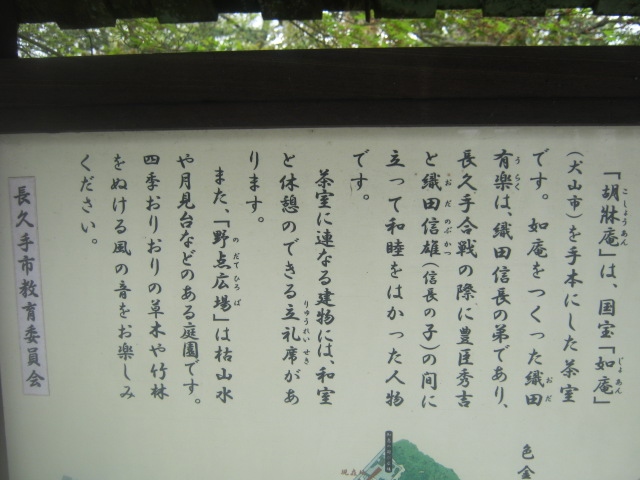 「胡牀庵」は、国宝「如庵」
（犬山市）を手本にした茶室
です。如庵をつくった織田
有楽は、織田信長の弟であり、
長久手合戦の際に豊臣秀吉
と織田信雄（信長の子）の間に
立って和睦をはかった人物
です。
茶室に連なる建物には、和室
と休憩のできる立礼席があ
ります。
また、「野点広場」は枯山水
や月見台などのある庭園です。
四季おりおりの草木や竹林
をぬける風の音をお楽しみ
ください。
長久手市教育委員会
色金